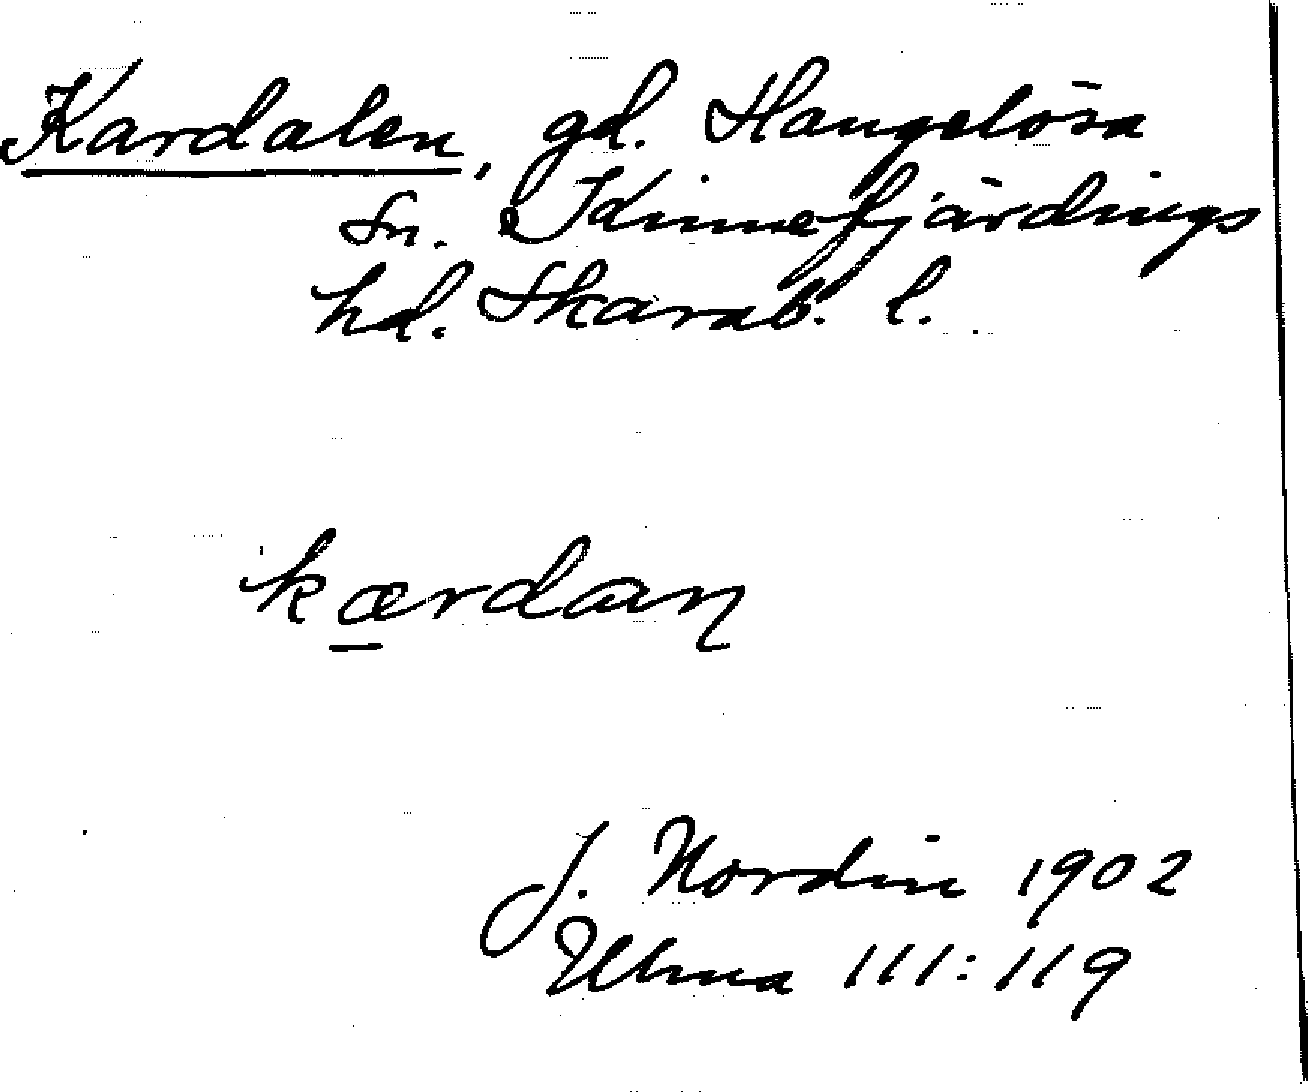 Kardalen, gd. Hangelösa
sn. Kinnefjärdings
hd. Skarab. l.
kærdaɳ
J. Nordin 1902
Ulma 111:119